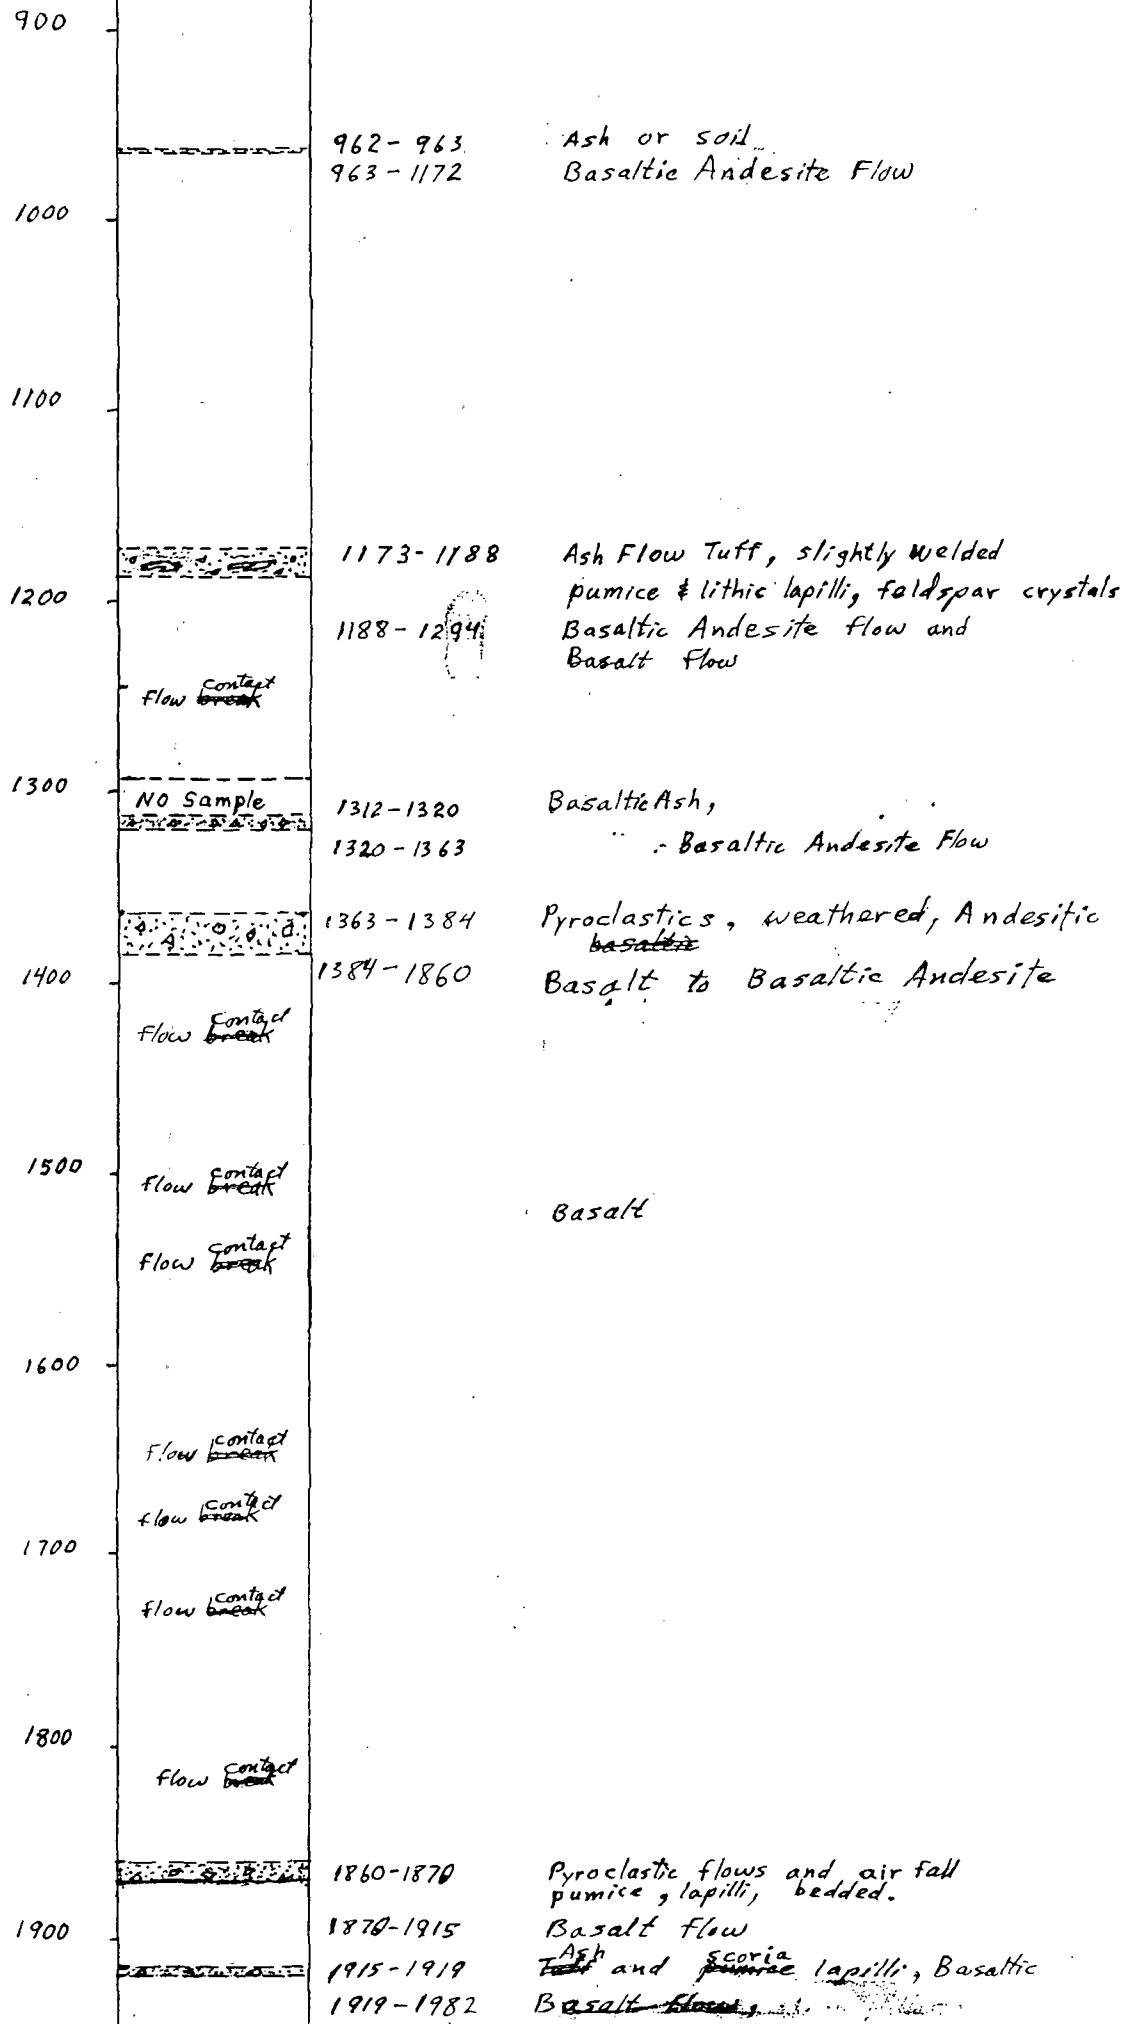 900
962-963 Ash or soil
963-1172 Basaltic Andesite Flow
1000
1100
1173-1188 Ash Flow Tuff, slightly welded
pumice & lithic lapilli, feldspar crystals
1200
1188-1294 Basaltic Andesite flow and
Basalt Flow
flow contact break
1300
NO Sample
1312-1320 Basaltic Ash,
1320-1363 Basaltic Andesite Flow
1363-1384 Pyroclastics, weathered, Andesitic
basaltic
1400
1384-1860 Basalt to Basaltic Andesite
flow contact break
1500
flow contact break
Basalt
flow contact break
1600
flow contact break
flow contact break
1700
flow contact break
1800
flow contact break
1860-1870 Pyroclastic flows and air fall
pumice, lapilli, bedded.
1900
1870-1915 Basalt flow
1915-1919 Ash Tuff and scoria pumice lapilli, Basaltic
1919-1982 Basalt flow,